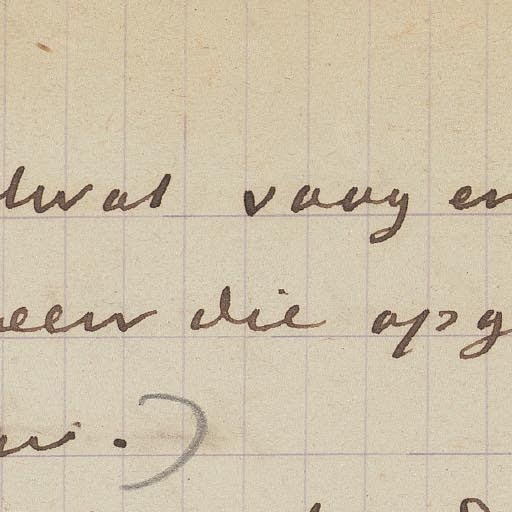 wat vaag en
een die opg
.)